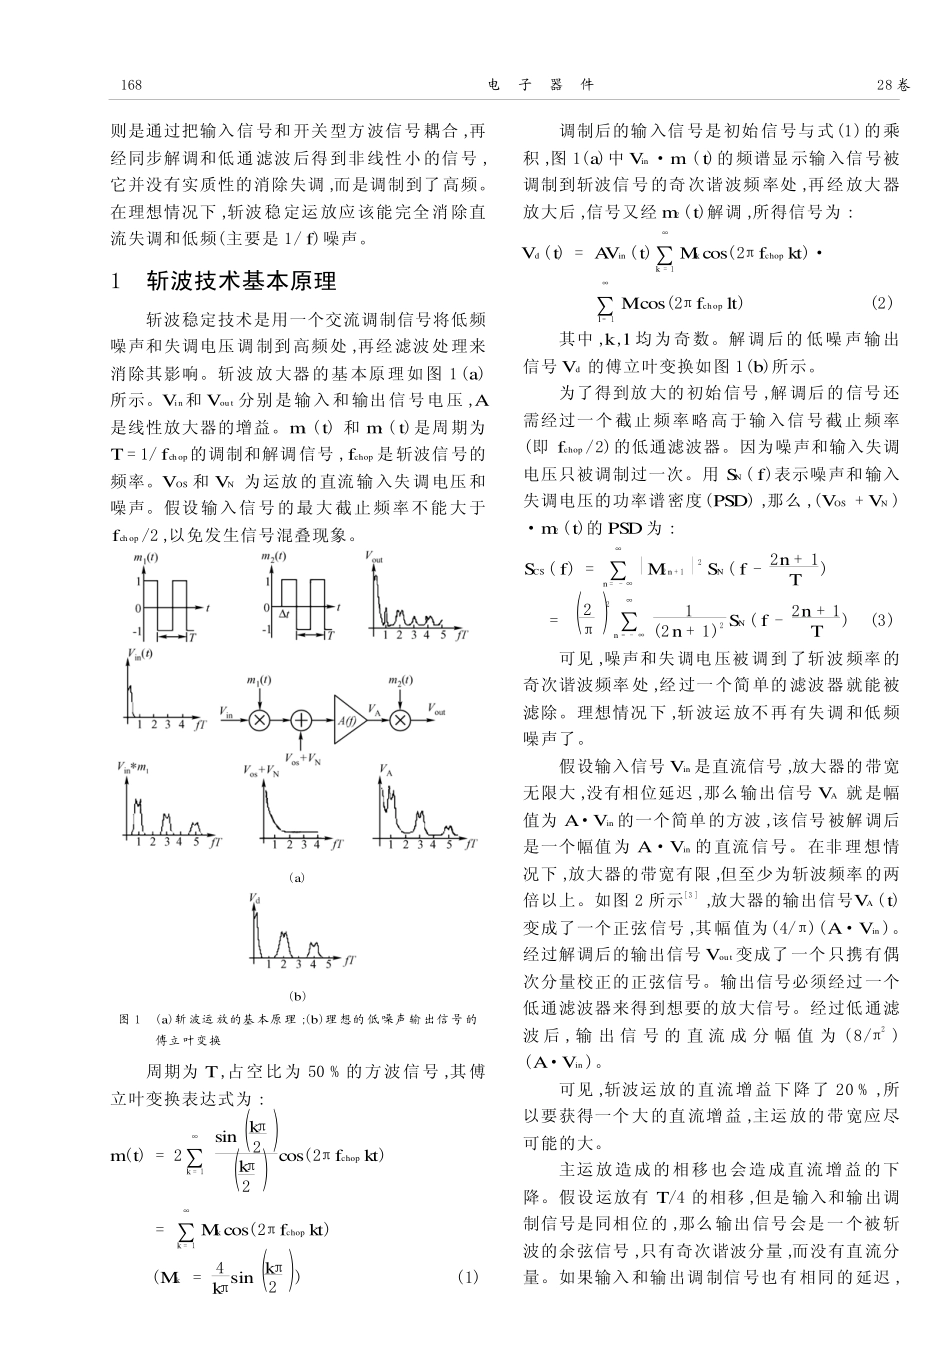 168
电 子 器 件
28 卷
则是通过把输入信号和开关型方波信号耦合 ,再
经同步解调和低通滤波后得到非线性小的信号 ,
它并没有实质性的消除失调 ,而是调制到了高频。
在理想情况下 ,斩波稳定运放应该能完全消除直
流失调和低频(主要是 1/ f) 噪声。
1 斩波技术基本原理
斩波稳定技术是用一个交流调制信号将低频
噪声和失调电压调制到高频处 ,再经滤波处理来
消除其影响。斩波放大器的基本原理如图 1 (a)
所示。Vin 和 Vout 分别是输入和输出信号电压 ,A
是线性放大器的增益。m (t) 和 m (t) 是周期为
T = 1/ fchop 的调制和解调信号 , fchop 是斩波信号的
频率。VOS 和 VN 为运放的直流输入失调电压和
噪声。假设输入信号的最大截止频率不能大于
fchop /2 ,以免发生信号混叠现象。
m1(t) m2(t) Vout
1 0 -1 t T
1 0 -1 Δt t T
1 2 3 4 5 fT
Vin(t)
1 2 3 4 fT
m1(t) m2(t)
Vin A(f) VA Vout
Vos+VN
Vin*m1 Vos+VN VA
1 2 3 4 5 fT
1 2 3 4 fT
1 2 3 4 5 fT
(a)
Vd
1 2 3 4 5 fT
(b)
图 1 (a) 斩波运放的基本原理 ;(b) 理想的低噪声输出信号的
傅立叶变换
周期为 T ,占空比为 50 % 的方波信号 ,其傅
立叶变换表达式为 :
m(t) = 2 ∑ k=1 ∞ sin (kπ/2) / (kπ/2) cos(2π fchop kt)
= ∑ k=1 ∞ Mk cos(2π fchop kt)
(Mk = 4/kπ sin (kπ/2)) (1)
调制后的输入信号是初始信号与式(1) 的乘
积 ,图 1 (a) 中 Vin · m (t) 的频谱显示输入信号被
调制到斩波信号的奇次谐波频率处 ,再经放大器
放大后 ,信号又经 m2 (t) 解调 ,所得信号为 :
Vd (t) = AVin (t) ∑ k=1 ∞ Mk cos(2π fchop kt) ·
∑ l=1 ∞ Ml cos(2π fchop lt) (2)
其中 ,k ,l 均为奇数。解调后的低噪声输出
信号 Vd 的傅立叶变换如图 1 (b) 所示。
为了得到放大的初始信号 ,解调后的信号还
需经过一个截止频率略高于输入信号截止频率
(即 fchop /2) 的低通滤波器。因为噪声和输入失调
电压只被调制过一次。用 SN ( f) 表示噪声和输入
失调电压的功率谱密度 (PSD) ,那么 , (VOS + VN )
· m2 (t) 的 PSD 为 :
SCS ( f) = ∑ n=-∞ ∞ | M2n+1 |² SN ( f - (2n + 1)/T )
= (2/π)² ∑ n=-∞ ∞ 1/(2n + 1)² SN ( f - (2n + 1)/T ) (3)
可见 ,噪声和失调电压被调到了斩波频率的
奇次谐波频率处 ,经过一个简单的滤波器就能被
滤除。理想情况下 ,斩波运放不再有失调和低频
噪声了。
假设输入信号 Vin 是直流信号 ,放大器的带宽
无限大 ,没有相位延迟 ,那么输出信号 VA 就是幅
值为 A · Vin 的一个简单的方波 ,该信号被解调后
是一个幅值为 A · Vin 的直流信号。在非理想情
况下 ,放大器的带宽有限 ,但至少为斩波频率的两
倍以上。如图 2 所示[3] ,放大器的输出信号VA (t)
变成了一个正弦信号 ,其幅值为 (4/π) (A · Vin ) 。
经过解调后的输出信号 Vout 变成了一个只携有偶
次分量校正的正弦信号。输出信号必须经过一个
低通滤波器来得到想要的放大信号。经过低通滤
波后 , 输出信号的直流成分幅值为 (8/π²)
(A · Vin ) 。
可见 ,斩波运放的直流增益下降了 20 % ,所
以要获得一个大的直流增益 ,主运放的带宽应尽
可能的大。
主运放造成的相移也会造成直流增益的下
降。假设运放有 T/4 的相移 ,但是输入和输出调
制信号是同相位的 ,那么输出信号会是一个被斩
波的余弦信号 ,只有奇次谐波分量 ,而没有直流分
量。如果输入和输出调制信号也有相同的延迟 ,